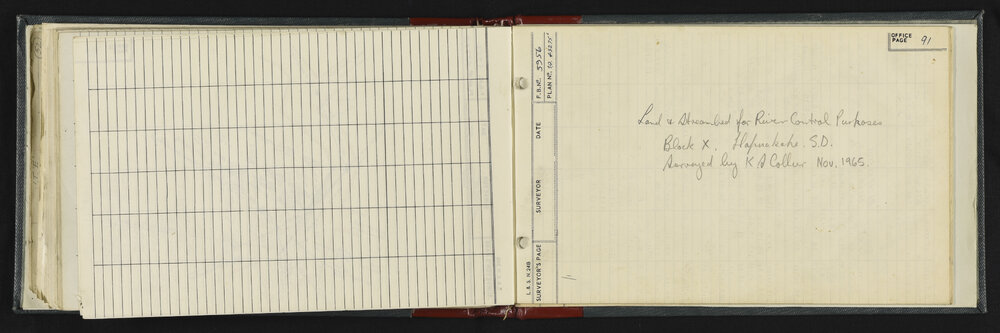 OFFICE PAGE 91
Land & Streambed for River Control Purposes
Block X. Hapuakohe. S.D.
Surveyed by K A Collier Nov. 1965.
F.B. Nº. 5956
PLAN Nº.
DATE
SURVEYOR
SURVEYOR'S PAGE
L. & S. N. 24B